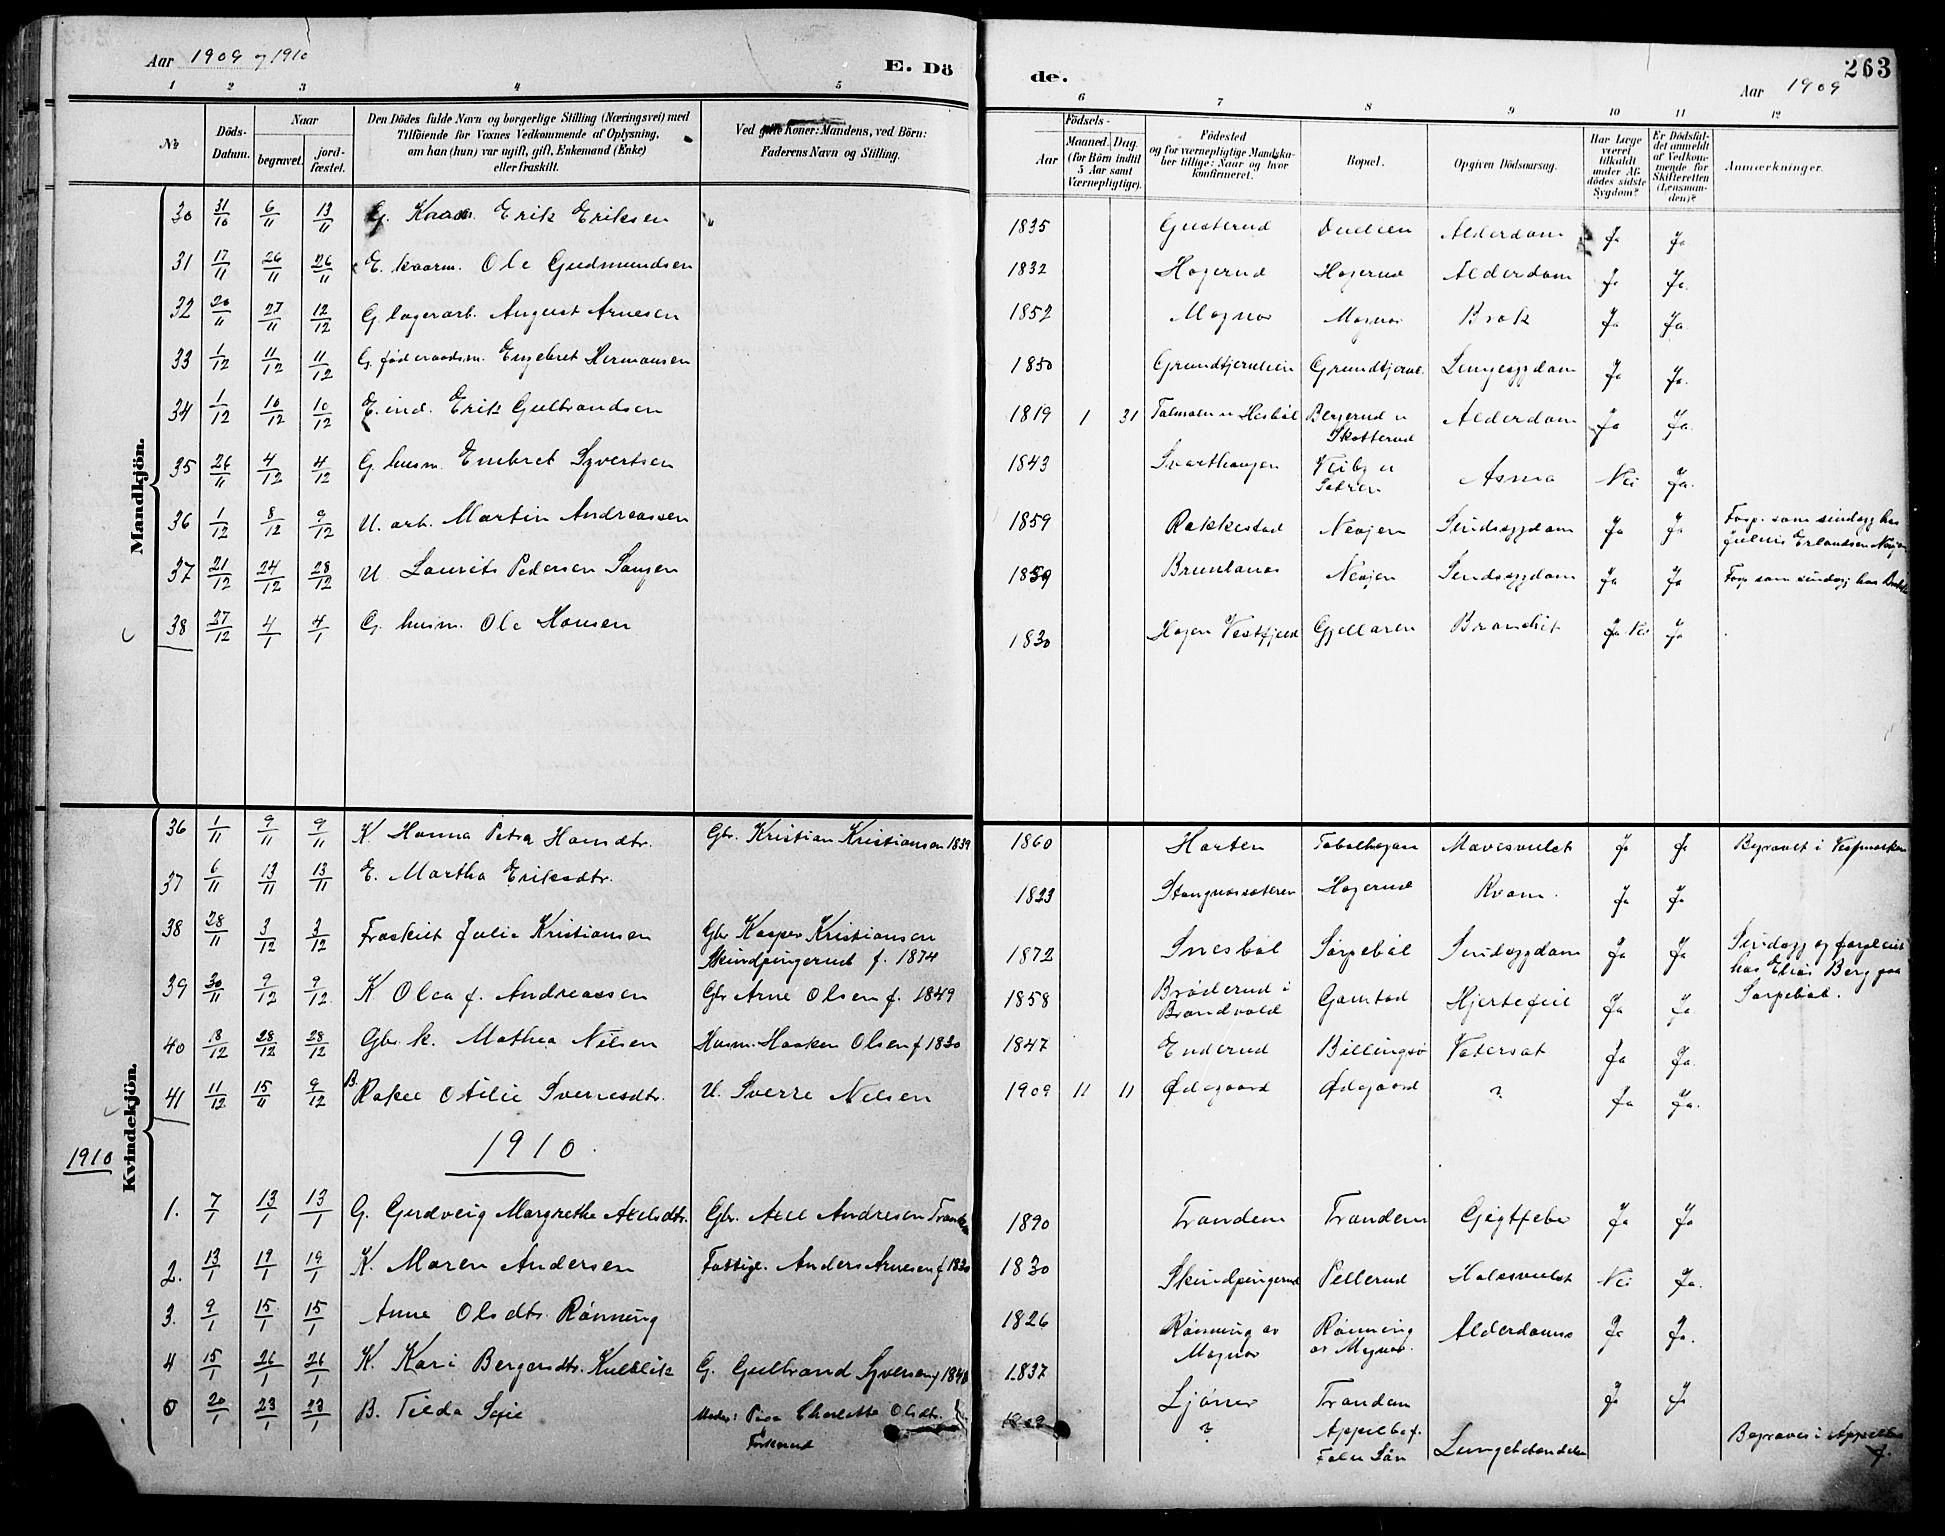 Aar 1909 og 1910
E. Dö
de.
Aar 1909
263
1 2 3 4 5 6 7 8 9 10 11 12
No
Döds-Datum.
Naar
begravet.
jord-fæstet.
Den Dödes fulde Navn og borgerlige Stilling (Næringsvei) med
Tilföiende for Voxnes Vedkommende af Oplysning,
om han (hun) var ugift, gift, Enkemand (Enke)
eller fraskilt.
Ved gifte Koner: Mandens, ved Börn:
Faderens Navn og Stilling.
Födsels-
Aar
Maaned. Dag.
(for Börn indtil
5 Aar samt
Værnepligtige).
Födested
og for værnepligtige Mandska-
ber tillige: Naar og hvor
konfirmeret.
Bopæl.
Opgiven Dödsaarsag.
Har Læge
været
tilkaldt
under Af-
dödes sidste
Sygdom?
Er Dödsfal-
det anmeldt
af Vedkom-
mende for
Skifteretten
(Lensman-
den)?
Anmærkninger.
Mandkjön.
30 31/10 6/11 13/11 G. Erik Eriksen 1835 Alderdom Ja Ja
31 17/11 26/11 26/11 E. kaarm. Ole Gudmundsen 1832 Hagerud Hagerud Alderdom Ja Ja.
32 20/11 27/11 12/12 G. lagerarb. August Arnesen 1852 Magnor Magnor Brok Ja Ja
33 1/12 11/12 11/12 G. föderaadsm. Engebret Hermansen 1850 Grundtjernlien Grundtjernl. Lungesygdom Ja Ja.
34 1/12 10/12 10/12 E. ind. Erik Gulbrandsen 1819 1 31 Bergerud u Alderdom Ja Ja.
Skotterud
35 26/11 4/12 4/12 G. husm. Embret Syvertsen 1843 Svarthaugen Veiby u Asma Nei Ja.
Sætren
36 1/12 8/12 9/12 U. arb. Martin Andreassen 1859 Rakkestad Nesjen Sindssygdom Ja Ja Forp. som sindssyg hos
Julius Erlandsen
37 21/12 24/12 28/12 U Laurits Pedersen 1859 Brunlanes Nesjen Sindssygdom Ja Ja Forp som sindssyg hos
38 27/12 4/1 4/1 G. husm. Ole Hansen 1830 Hagen Gjellaren Ja Nei Ja
Kvindekjön.
36 1/11 9/11 9/11 K. Hanna Petra Hansdtr. Gbr. Kristian Kristiansen 1839 1860 Horten Mavesvulst Ja Ja Begravet i Vestmarken
37 6/11 13/11 13/11 E. Martha Eriksdtr. 1823 Stangnessæteren Hagerud Ja Ja
38 28/11 3/12 3/12 Fraskilt Julie Kristiansen Gbr Kasper Kristiansen 1872 Snesböl Sörpeböl Sindssygdom Ja Ja Sindssyg og forpleiet
Skindpungerud f. 1874 hos Elias Berg paa
39 30/11 9/12 9/12 K Olea f. Andreassen Gbr Arne Olsen f. 1849 1858 Bröderud i Hjertefeil Ja Ja. Sörpeböl.
Brandvold
40 18/12 28/12 28/12 Gbr. k. Mathea Nilsen Husm. Haaken Olsen f 1830 1847 Enderud Billingsö Vatersot Ja Ja.
41 11/12 15/11 9/12 B. Rakel Otilie Sverresdtr. U. Sverre Nilsen 1909 11 11 Ödegaard Ödegaard ? Ja Ja.
1910
1910.
1. 7/1 13/1 13/1 G. Gudveig Margrethe Axelsdtr. Gbr. Axel Andresen 1890 Tranden Tranden Gigtfeber Ja Ja
2. 13/1 19/1 19/1 K. Maren Andersen Fattigl. Anders Arnesen f 1830 1830 Skindpungerud Pellerud Halssvulst Nei Ja.
3. 9/1 15/1 15/1 Anne Olsdtr Rönning 1826 Rönning av Rönning Alderdoms Ja Ja.
Magnor av Magnor.
4 15/1 26/1 26/1 K. Kari Bergersdtr. G. Gulbrand Syversen f 1840 1837 Ljöner Tranden Ja Ja
5 20/1 23/1 23/1 B. Tilda Sofie Moder: Charlotte Olsdtr. 1909 ? Appelbo f. Lungebetændelse Begraves i Appelbo
Falu Län f.